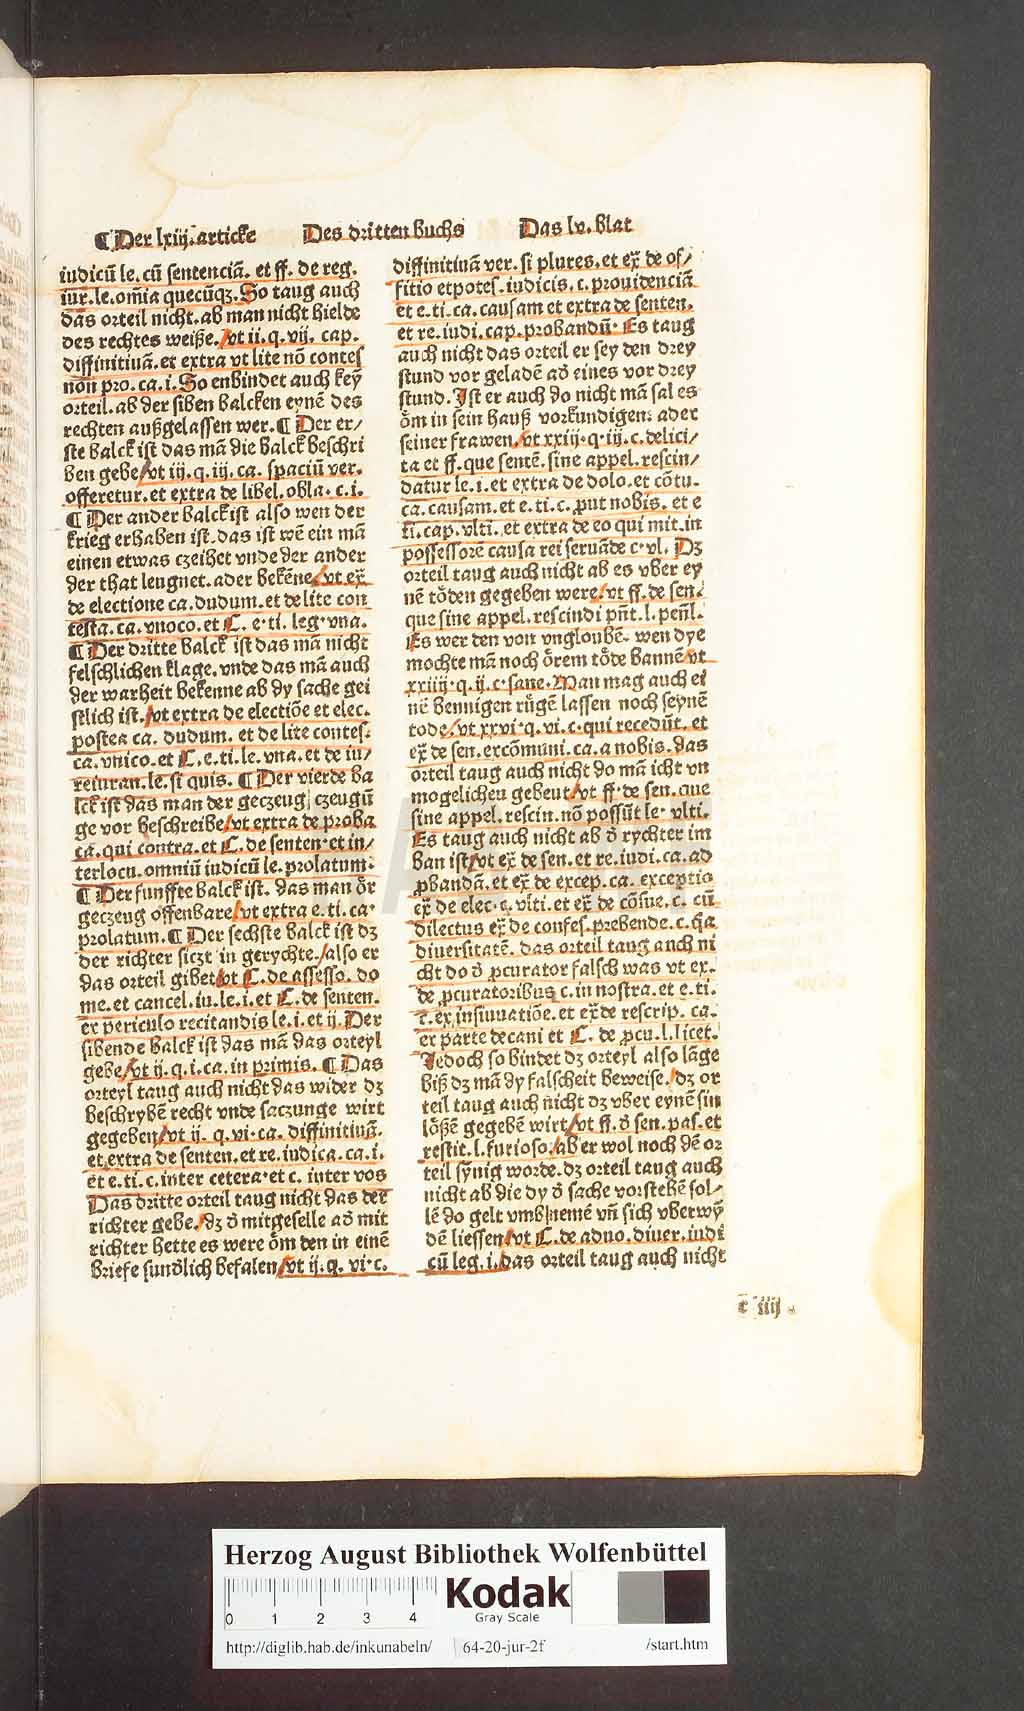 ¶ Der lxiij. articke Des dritten buchs Das lv. blat
iudicū le. cū sentenciā. et ff. de reg.
iur. le. om̄ia quecūqꝫ. So taug auch
das orteil nicht. ab man nicht hielde
des rechtes weiße. / vt ii. q. vij. cap.
diffinitiuā. et extra vt lite nō contes
non pro. ca. i. So enbindet auch keÿ
orteil. ab der siben balcken eynē des
rechten außgelassen wer. ¶ Der er/
ste balck ist das mā die balck beschri
ben gebe / vt iij. q. iij. ca. spaciū ver.
offeretur. et extra de libel. obla. c. i.
¶ Der ander balck ist also wen der
krieg erhaben ist. das ist wē ein mā
einen etwas czeihet vnde der ander
der that leugnet. ader bekēne / vt ex̄
de electione ca. dudum. et de lite con
testa. ca. vnoco. et C. e. ti. leg. vna.
¶ Der dritte balck ist das mā nicht
felschlichen klage. vnde das mā auch
der warheit bekenne ab dy sache gei
stlich ist. / vt extra de electiōe et elec.
postea ca. dudum. et de lite contes.
ca. vnico. et C. e. ti. le. vna. et de iu/
reiuran. le. si quis. ¶ Der vierde ba
lck ist das man der geczeug czeugū
ge vor beschreibe / vt extra de proba
ca. qui contra. et C. de senten. et in/
terlocu. omniū iudicū le. prolatum.
¶ Der funffte balck ist. das man ör
geczeug offenbare / vt extra e. ti. ca.
prolatum. ¶ Der sechste balck ist dꝫ
der richter siczt in gerychte. / also er
das orteil gibet / vt C. de assesso. do
me. et cancel. iu. le. i. et C. de senten.
er periculo recitandis le. i. et ij. Der
sibende balck ist das mā das orteyl
gebe / vt ij. q. i. ca. in primis. ¶ Das
orteyl taug auch nicht das wider dꝫ
beschrybē recht vnde saczunge wirt
gegeben / vt ij. q. vi. ca. diffinitiuā.
et extra de senten. et re. iudica. ca. i.
et e. ti. c. inter cetera. et c. inter vos
Das dritte orteil taug nicht das der
richter gebe. / dꝫ ð mitgeselle ad mit
richter hette es were öm den in einē
briefe sunðlich befalen / vt ij. q. vi. c.
diffinitiuā ver. si plures. et ex̄ de of/
fitio et potes. iudicis. c. prouidenciā
et e. ti. ca. causam et extra de senten.
et re. iudi. cap. probandū. Es taug
auch nicht das orteil er sey den drey
stund vor geladē ad eines vor drey
stund. Ist er auch do nicht mā sal es
öm in sein hauß vorkundigen. ader
seiner frawen / vt xxiij. q. iij. c. delici/
ta et ff. que sentē. sine appel. rescin/
datur le. i. et extra de dolo. et cōtu.
ca. causam. et e. ti. c. put nobis. et e
ti. cap. vlti. et extra de eo qui mit. in
possessore causa rei seruāde c. vl. Dꝫ
orteil taug auch nicht ab es vber ey
nē töden gegeben were / vt ff. de sen.
que sine appel. rescindi pn̄t. l. pen̄l.
Es wer den von vngloubē. wen dye
mochte mā noch örem töde bannē / vt
xxiiij. q. ij. c. sane. Man mag auch ei
nē bennigen rügē lassen noch seynē
tode / vt xxvi. q. vi. c. qui recedūt. et
ex̄ de sen. excōmuni. ca. a nobis. das
orteil taug auch nicht do mā icht vn
mogelichen gebeut / vt ff. de sen. que
sine appel. rescin. nō possūt le. vlti.
Es taug auch nicht ab ð rychter im
ban ist / vt ex̄ de sen. et re. iudi. ca. ad
ꝓbandā. et ex̄ de excep. ca. exceptio
ex̄ de elec. c. vlti. et ex̄ de cōsue. c. cū
dilectus ex̄ de confes. prebende. c. qa
diuersitatē. das orteil taug auch ni
cht do ð ꝓcurator falsch was vt ex.
de ꝓcuratoribus c. in nostra. et e. ti.
c. ex insinuatiōe. et ex̄ de rescrip. ca.
ex parte decani et C. de ꝓcu. l. licet.
Jedoch so bindet dꝫ orteyl also läge
biß dꝫ mā dy falscheit beweise. / dꝫ or
teil taug auch nicht dꝫ vber eynē sin
lößē gegebē wirt / vt ff. ð sen. pas. et
restit. l. furioso. / aber wol noch dē or
teil synig worde. dꝫ orteil taug auch
nicht ab die dy ð sache vorstehē sol/
lē do gelt vmb nemē vn̄ sich vberwÿ
dē liessen / vt C. de aduo. diuer. iudi
cū leg. i. das orteil taug auch nicht
c iiij
Herzog August Bibliothek Wolfenbüttel
0 1 2 3 4
Kodak
Gray Scale
http://diglib.hab.de/inkunabeln/ 64-20-jur-2f /start.htm